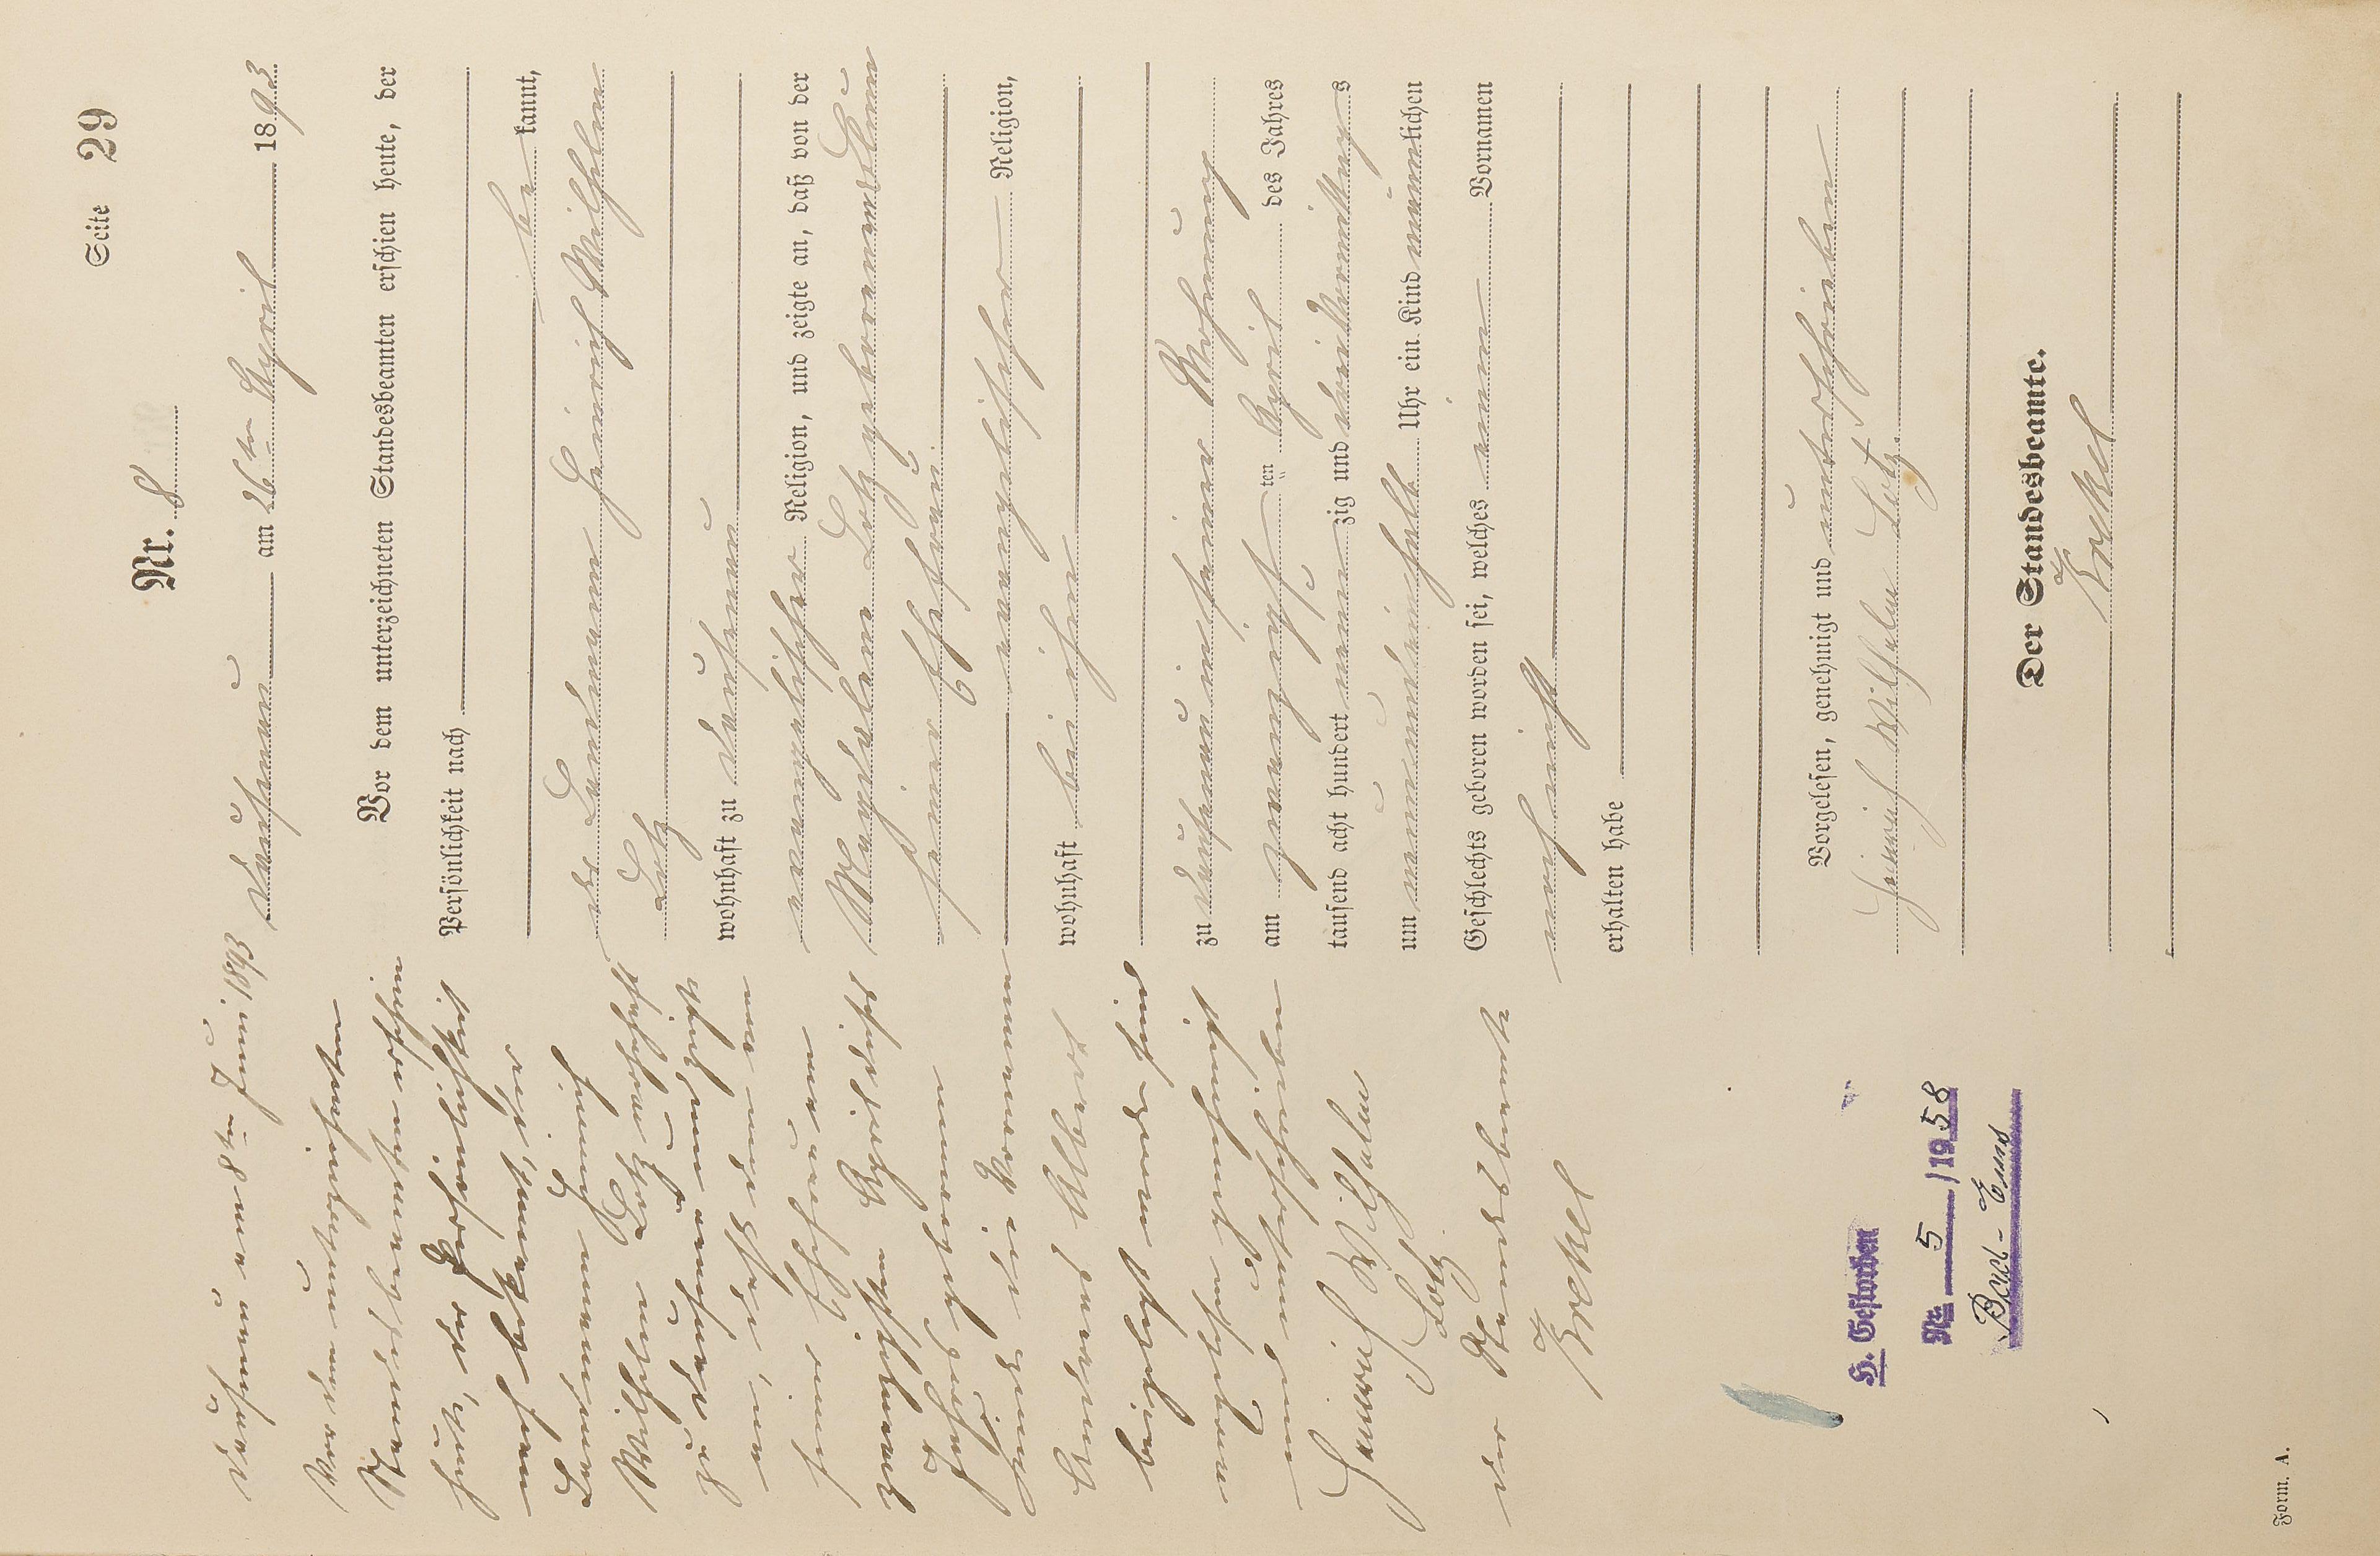 Seite 29
Nr. 8
Dausenau am 26ten April 1893
Vor dem unterzeichneten Standesbeamten erschien heute, der
Persönlichkeit nach
be kannt,
der Landmann Heinrich Wilhelm
Lotz
wohnhaft zu Dausenau
evangelischer Religion, und zeigte an, daß von der
Magdalena Lotz geborenen
seiner Ehefrau
evangelischer Religion,
wohnhaft bei ihm
zu Dausenau in seiner Wohnung
am zwanzigs ten April des Jahres
tausend acht hundert neun zig und drei Vormittags
um neun und einhalb Uhr ein Kind männlichen
Geschlechts geboren worden sei, welches einen Vornamen
noch nicht
erhalten habe
Vorgelesen, genehmigt und unterschrieben
Heinrich Wilhelm Lotz.
Der Standesbeamte.
Krekel
Dausenau am 8ten Juni 1893
Vor dem unterzeichneten
Standesbeamten erschien
heute, der Persönlichkeit
nach bekannt, der
Landmann Heinrich
Wilhelm Lotz, wohnhaft
zu Dausenau und zeigt
an, daß dem von
seiner Ehefrau am
zwanzigsten April dieses
Jahres geborenen
Kinde die Vornamen
Albert
beigelegt worden sind
Vorgelesen genehmigt
und unterschrieben
Heinrich Wilhelm
Lotz
Der Standesbeamte
Krekel
H. Gestorben
Nr. 5 /1958
Bad-Ems
Form. A.